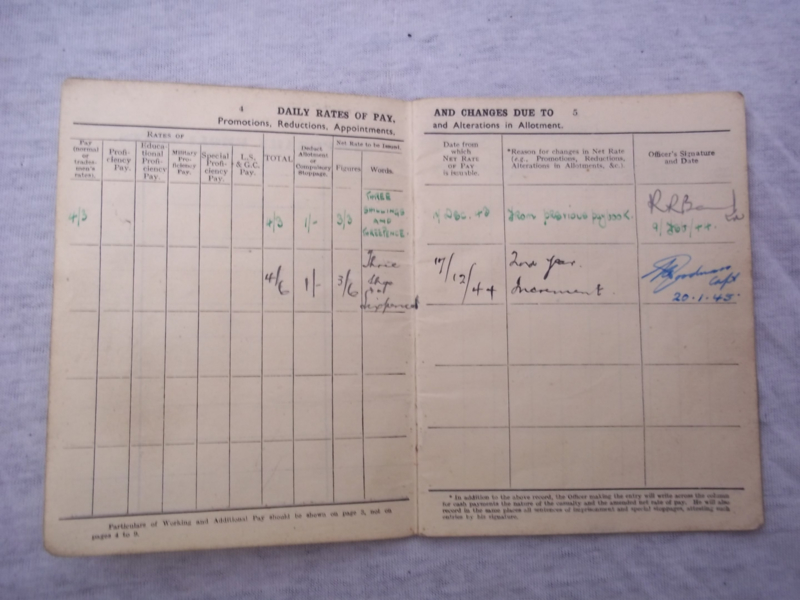 4
DAILY RATES OF PAY,
Promotions, Reductions, Appointments,
RATES OF
Pay (normal or trades-men's rates).
Profi-ciency Pay.
Educa-tional Profi-ciency Pay.
Military Pro-ficiency Pay.
Special Profi-ciency Pay.
L.S. & G.C. Pay.
TOTAL
Deduct Allotment or Compulsory Stoppage.
Net Rate to be Issued.
Figures.
Words.
4/3
4/3
1/-
3/3
THREE
SHILLINGS
AND
THREEPENCE.
4/6
1/-
3/6
Three
Sixpence
Particulars of Working and Additional Pay should be shown on page 3, not on
pages 4 to 9.
AND CHANGES DUE TO
5
and Alterations in Allotment.
Date from which NET RATE OF PAY is issuable.
*Reason for changes in Net Rate (e.g., Promotions, Reductions, Alterations in Allotments, &c.).
Officer's Signature and Date
from previous paybook.
17/12/44
2nd year
Increment.
Capt
20-1-45
* In addition to the above record, the Officer making the entry will write across the column
for cash payments the nature of the casualty and the amended net rate of pay. He will also
record in the same places all sentences of imprisonment and special stoppages, attesting each
entry by his signature.